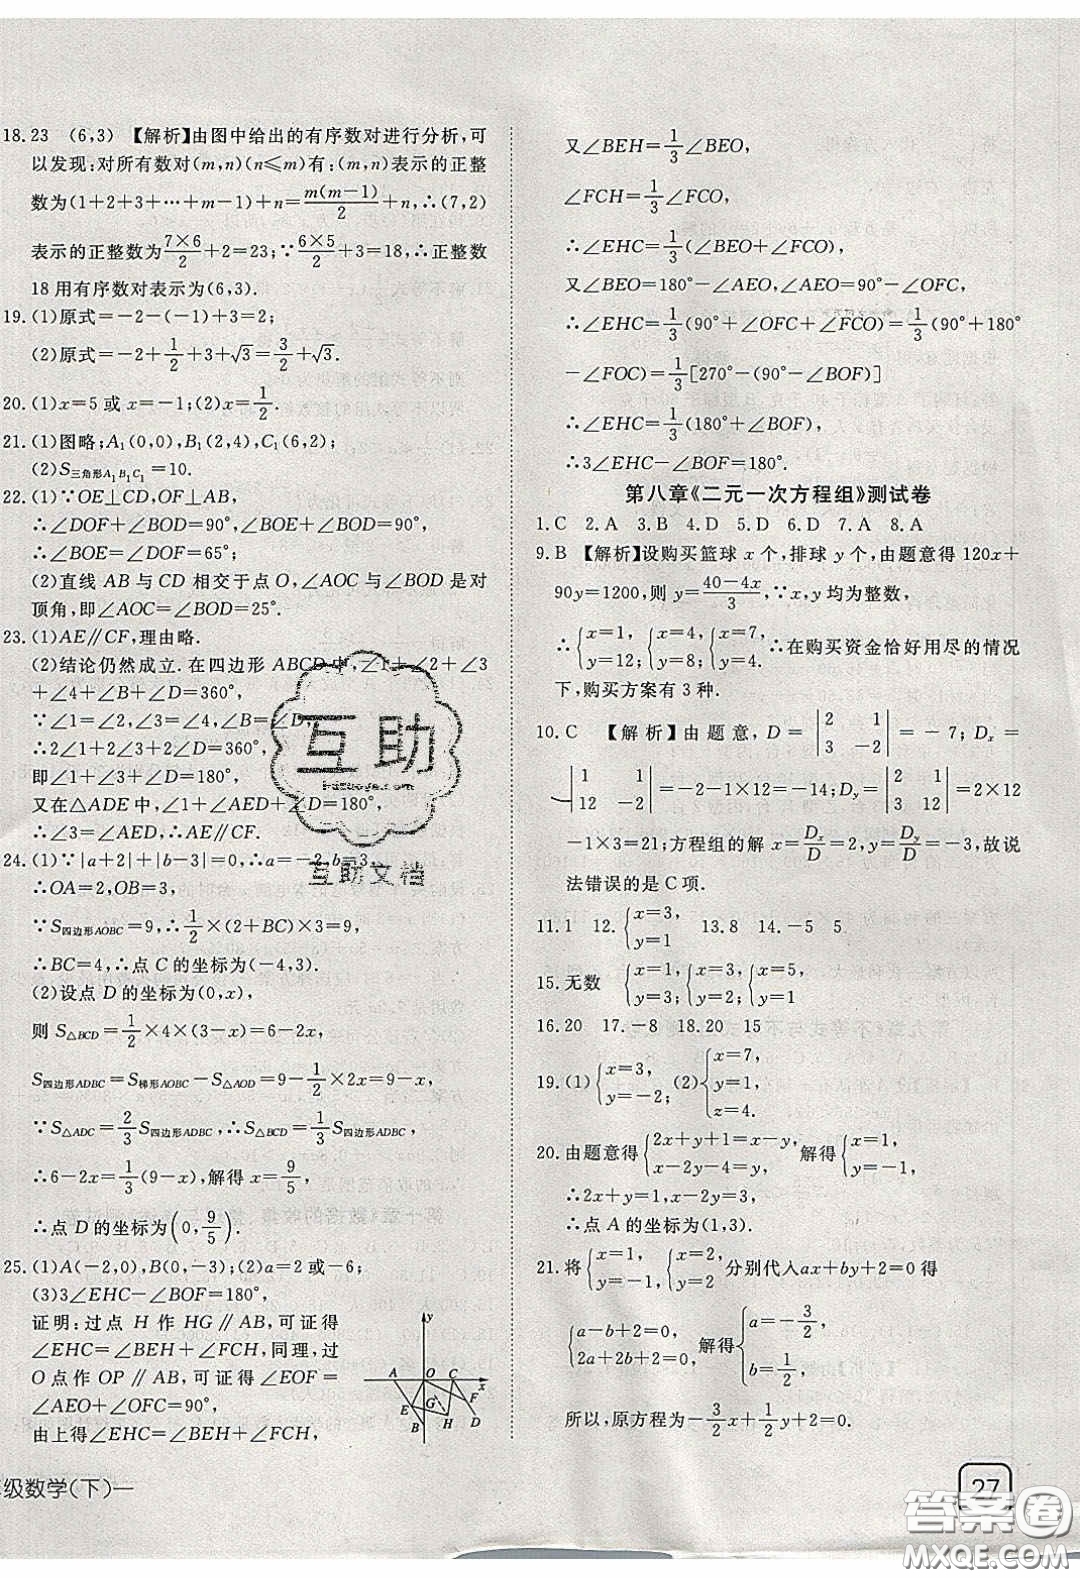 18.23 (6,3) 【解析】由图中给出的有序数对进行分析,可
以发现:对所有数对(m,n)(n≤m)有:(m,n)表示的正整
数为(1+2+3+…+m-1)+n=m(m-1)/2+n,∴(7,2)
表示的正整数为7×6/2+2=23;∵6×5/2+3=18,∴正整数
18用有序数对表示为(6,3).
19.(1)原式=-2-(-1)+3=2;
(2)原式=-2+1/2+3+√3=3/2+√3.
20.(1)x=5或x=-1;(2)x=1/2.
21.(1)图略;A₁(0,0),B₁(2,4),C₁(6,2);
(2)S三角形A₁B₁C₁=10.
22.(1)∵OE⊥CD,OF⊥AB,
∴∠DOF+∠BOD=90°,∠BOE+∠BOD=90°,
∴∠BOE=∠DOF=65°;
(2)直线AB与CD相交于点O,∠AOC与∠BOD是对
顶角,即∠AOC=∠BOD=25°.
23.(1)AE∥CF,理由略.
(2)结论仍然成立.在四边形ABCD中,∠1+∠2+∠3
+∠4+∠B+∠D=360°,
∵∠1=∠2,∠3=∠4,∠B=∠D,
∴2∠1+2∠4+2∠D=360°,
即∠1+∠4+∠D=180°,
又在△ADE中,∠1+∠AED+∠D=180°,
∴∠3=∠AED,∴AE∥CF.
24.(1)∵|a+2|+|b-3|=0,∴a=-2,b=3,
∴OA=2,OB=3,
∵S四边形AOBC=9,∴1/2×(2+BC)×3=9,
∴BC=4,∴点C的坐标为(-4,3).
(2)设点D的坐标为(0,x),
则S△BCD=1/2×4×(3-x)=6-2x,
S四边形ADBC=S梯形AOBC-S△AOD=9-1/2×2×x=9-x,
∵S△ADC=2/3S四边形ADBC,∴S△BCD=1/3S四边形ADBC,
∴6-2x=1/3(9-x),解得x=9/5,
∴点D的坐标为(0,9/5).
25.(1)A(-2,0),B(0,-3);(2)a=2或-6;
(3)3∠EHC-∠BOF=180°,
证明:过点H作HG∥AB,可证得
∠EHC=∠BEH+∠FCH,同理,过
O点作OP∥AB,可证得∠EOF=
∠AEO+∠OFC=90°,
由上得∠EHC=∠BEH+∠FCH,
y
A O C x
E G F
B H D
级数学(下)—
又∠BEH=1/3∠BEO,
∠FCH=1/3∠FCO,
∴∠EHC=1/3(∠BEO+∠FCO),
又∠BEO=180°-∠AEO=90°+∠OFC,
∴∠EHC=1/3(90°+∠OFC+∠FCO)=1/3(90°+180°
-∠FOC)=1/3[270°-(90°-∠BOF)]
∴∠EHC=1/3(180°+∠BOF),
∴3∠EHC-∠BOF=180°.
第八章《二元一次方程组》测试卷
1.C 2.A 3.B 4.D 5.D 6.D 7.A 8.A
9.B 【解析】设购买篮球x个,排球y个,由题意得120x+
90y=1200,则y=(40-4x)/3,∵x,y均为整数,
∴{x=1,y=12;{x=4,y=8;{x=7,y=4.∴在购买资金恰好用尽的情况
下,购买方案有3种.
10.C 【解析】由题意,D=|2 1; 3 -2|=-7;Dₓ=
|1 1; 12 -2|=-2-1×12=-14;Dy=|2 1; 3 12|=2×12
-1×3=21;方程组的解x=Dₓ/D=2,y=Dy/D=-3,故说
法错误的是C项.
11.1 12.{x=3,y=1 13.8 14.-5 5
15.无数 {x=1,y=3;{x=3,y=2;{x=5,y=1
16.20 17.-8 18.20 15
19.(1){x=3,y=-2; (2){x=7,y=1,z=4.
20.由题意得{2x+y+1=x-y,y=3x, 解得{x=1,
∴2x+y+1=x-y
∴点A的坐标为(1,3).
21.将{x=1,y=-1,{x=2,y=2分别代入ax+by+2=0得
{a-b+2=0,2a+2b+2=0,解得{a=-3/2,b=1/2,
所以,原方程为-3/2x+1/2y+2=0.
27
互助
互助文档
答案圈
MXQE.COM